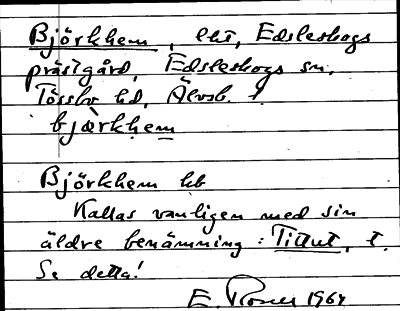 Björkhem, lht, Edsleskogs
prästgård, Edsleskogs sn,
Tössbo hd, Älvsb. l.
bjærkhem
Björkhem hb
Kallas vanligen med sin
äldre benämning: Tittut, t.
Se detta!
E. 1964